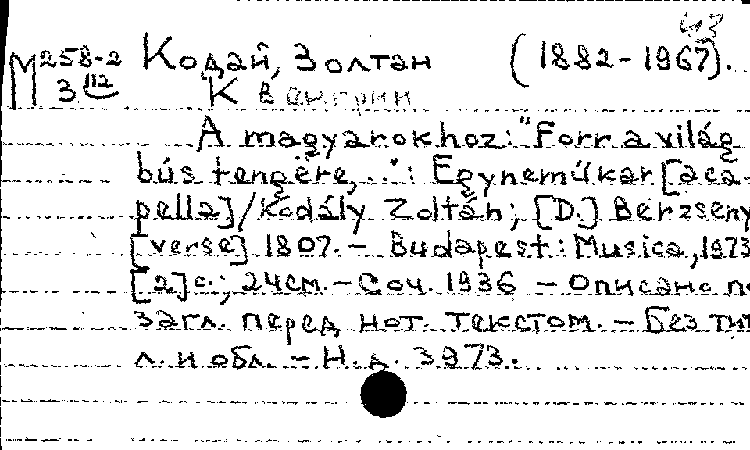 из
М 258-2 Кодай, Золтан (1882-1967).
3 112 К Венгрии
A magyarokhoz: "Forr a világ
bús tengere,..": Egyneműkar [aca-
pella]/Kodály Zoltán; [D.] Berzseny
[verse] 1807. – Budapest: Musica, 1973
[2]с.; 24см. – Соч. 1936 – Описано по
загл. перед нот. текстом. – Без тит
л. и обл. – Н.д. 3973.